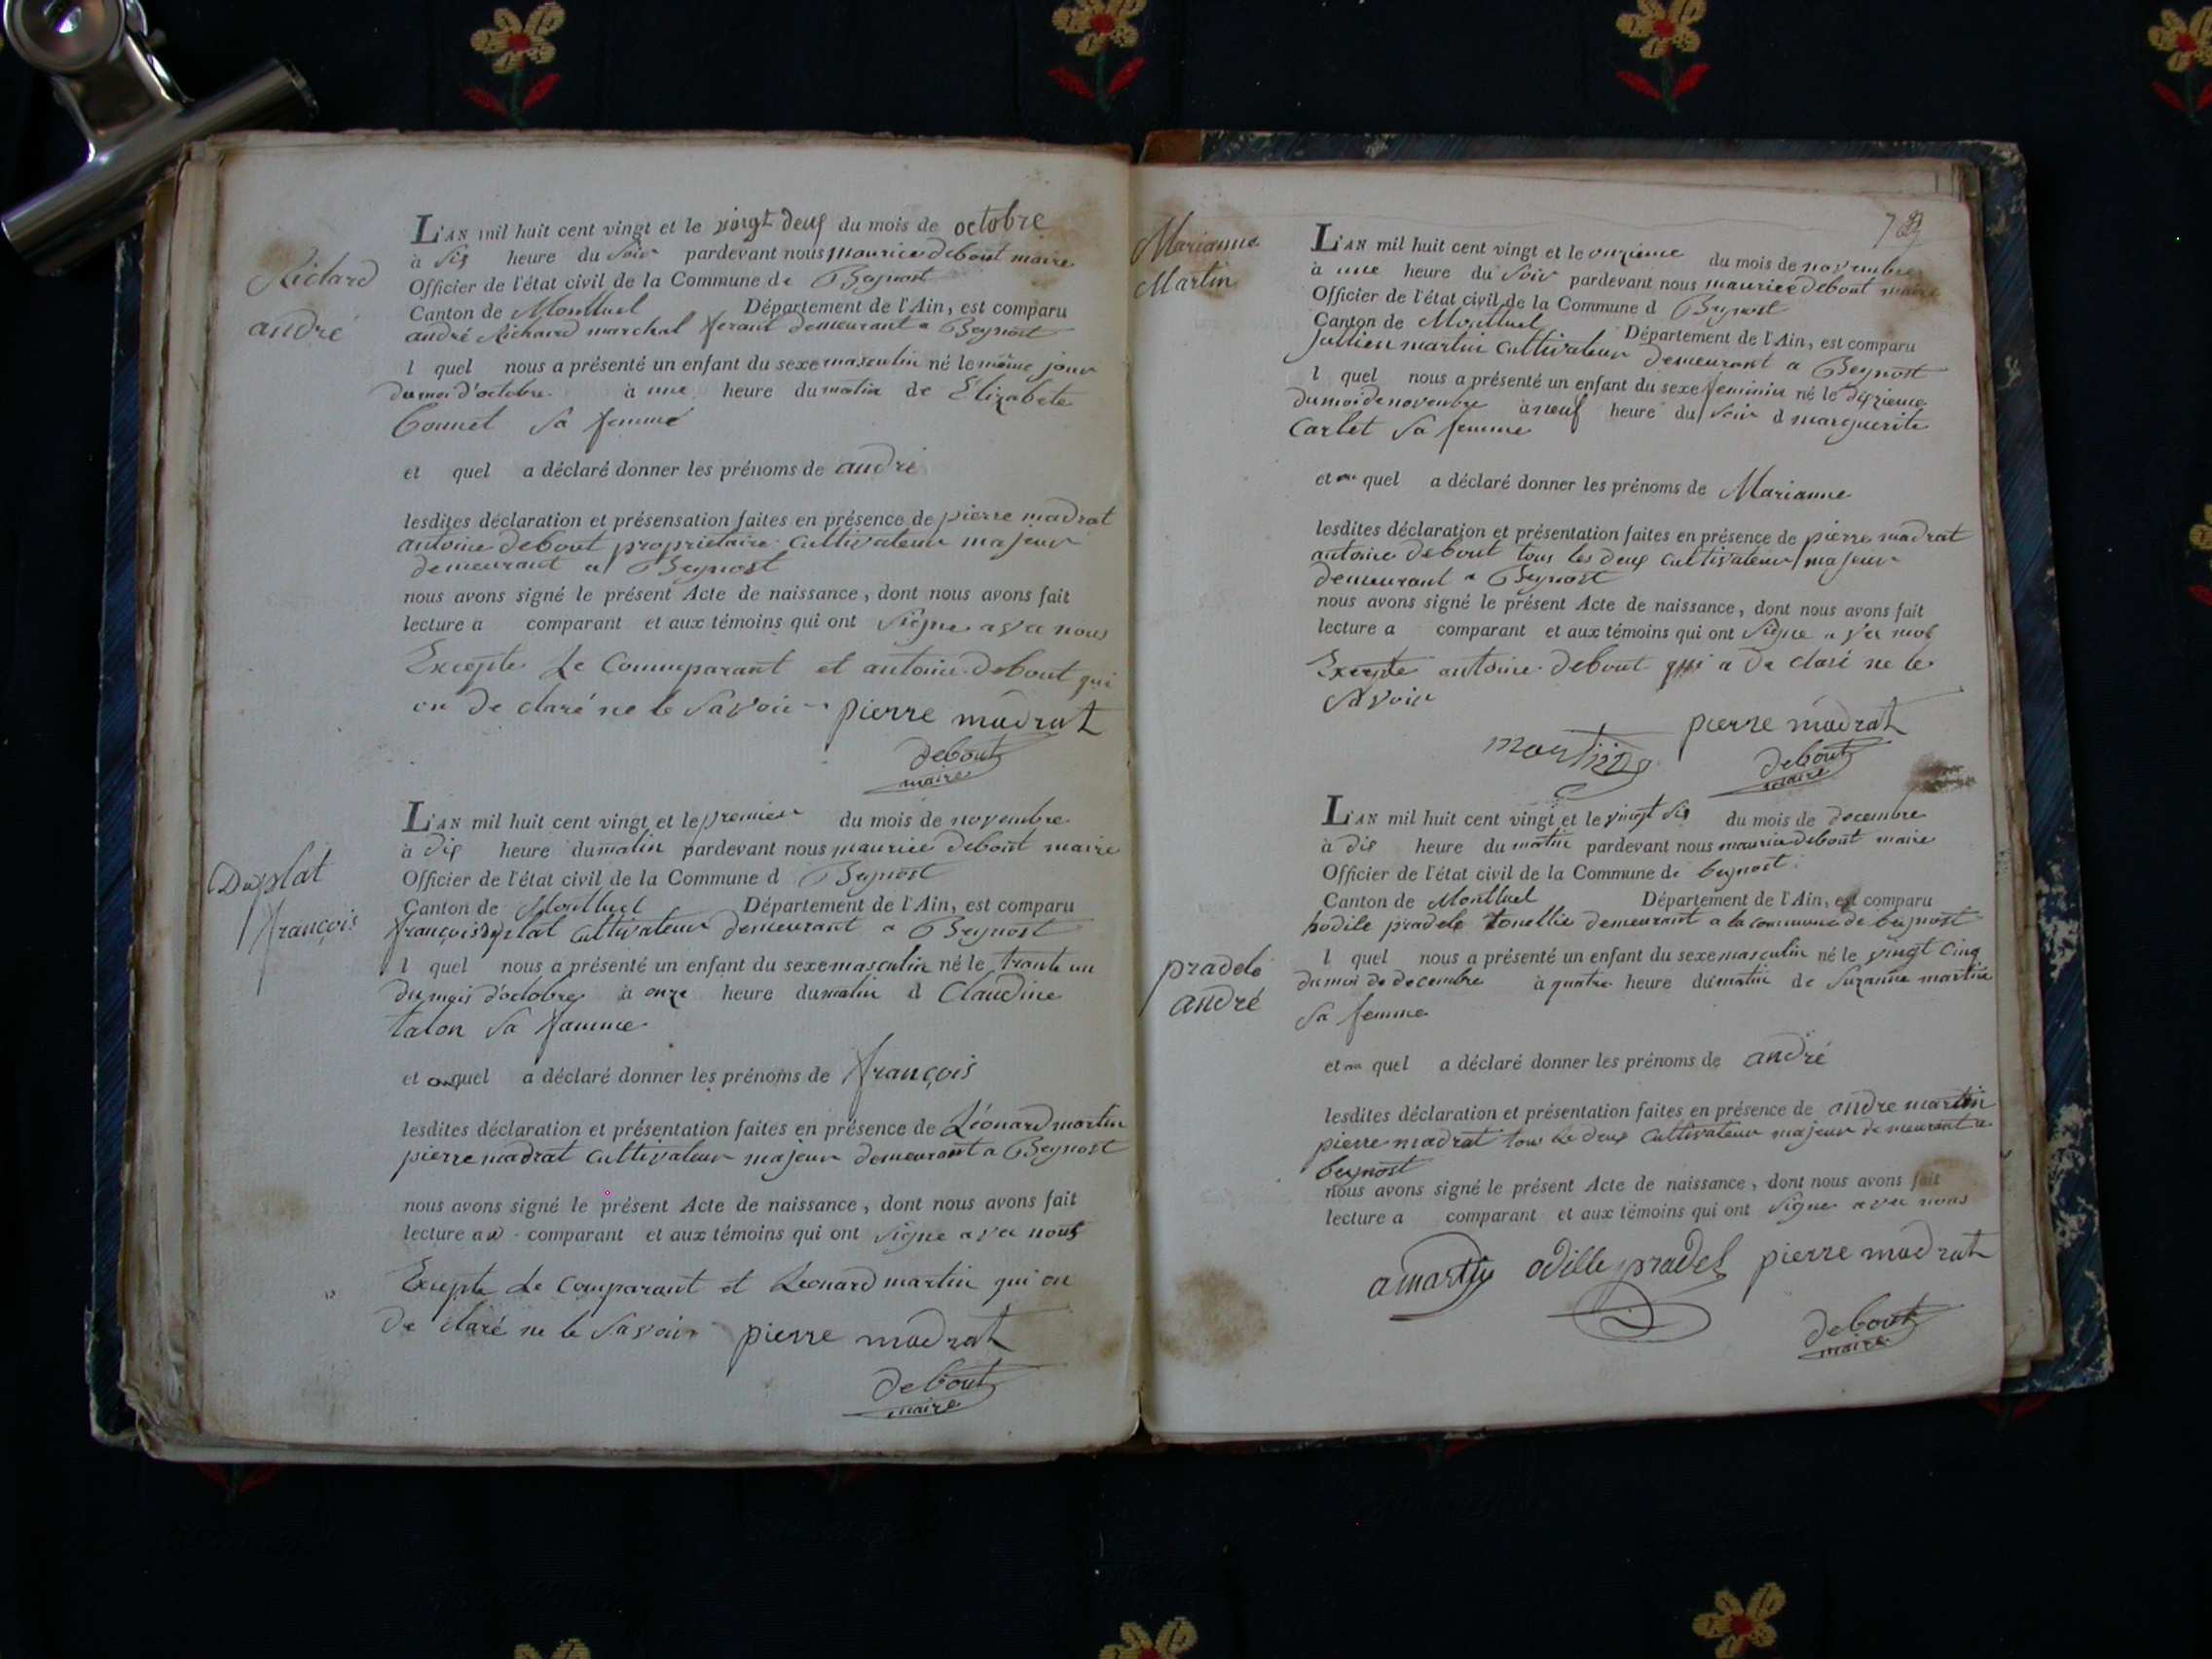 Richard
andré
L'AN mil huit cent vingt et le vingt deux du mois de octobre
à six heure du soir pardevant nous maurice debout maire
Officier de l'état civil de la Commune de Beynost
Canton de Montluel Département de l'Ain, est comparu
andré Richard marechal ferant demeurant a Beynost
l quel nous a présenté un enfant du sexe masculin né le même jour
du moi d'octobre à une heure du matin de Elizabete
Connet sa femme
et quel a déclaré donner les prénoms de andré
lesdites déclaration et présensation faites en présence de pierre madrat
antoine debout proprietaire cultivateur majeur
demeurant a Beynost
nous avons signé le présent Acte de naissance, dont nous avons fait
lecture a comparant et aux témoins qui ont signe avec nous
Excepte Le Commparant et antoine debout qui
on de claré ne le savoir pierre madrat
debout
maire
Duplat
françois
L'AN mil huit cent vingt et le premier du mois de novembre
à dix heure du matin pardevant nous maurice debout maire
Officier de l'état civil de la Commune d Beynost
Canton de Montluel Département de l'Ain, est comparu
françois duplat cultivateur demeurant a Beynost
l quel nous a présenté un enfant du sexe masculin né le trante un
du mois d'octobre à onze heure du matin d Claudine
talon sa famme
et auquel a déclaré donner les prénoms de françois
lesdites déclaration et présentation faites en présence de Léonard martin
pierre madrat cultivateur majeur demeurant a Beynost
nous avons signé le présent Acte de naissance, dont nous avons fait
lecture au comparant et aux témoins qui ont signe avec nous
Excepte Le Comparant et Leonard martin qui on
de claré ne le savoir pierre madrat
debout
maire
Marianne
Martin
L'AN mil huit cent vingt et le onzieme du mois de novembre
à une heure du soir pardevant nous maurice debout maire
Officier de l'état civil de la Commune d Beynost
Canton de Montluel Département de l'Ain, est comparu
Jullien martin cultivateur demeurant a Beynost
l quel nous a présenté un enfant du sexe feminin né le dixieme
du moi de novembre à neuf heure du soir d marguerite
Carlet sa femme
et au quel a déclaré donner les prénoms de Marianne
lesdites déclaration et présentation faites en présence de pierre madrat
antoine debout tous les deux cultivateur majeur
demeurant a Beynost
nous avons signé le présent Acte de naissance, dont nous avons fait
lecture a comparant et aux témoins qui ont signe avec
Excepte antoine debout qui a de claré ne le
savoir
martin pierre madrat
debout
maire
L'AN mil huit cent vingt et le vingt six du mois de decembre
à dix heure du matin pardevant nous maurice debout maire
Officier de l'état civil de la Commune de beynost
Canton de Montluel Département de l'Ain, est comparu
hodile pradele tonellie demeurant a la commune de beynost
pradele
andré
l quel nous a présenté un enfant du sexe masculin né le vingt cinq
du moi de decembre à quatre heure du matin de Suzanne martin
sa femme
et au quel a déclaré donner les prénoms de andré
lesdites déclaration et présentation faites en présence de andre martin
pierre madrat tous le deux cultivateur majeur demeurant a
beynost
nous avons signé le présent Acte de naissance, dont nous avons fait
lecture a comparant et aux témoins qui ont signe avec nous
amartin odille pradel pierre madrat
debout
maire